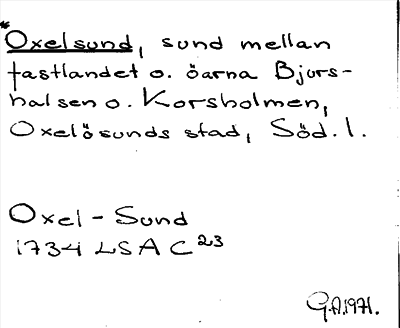 *Oxelsund, sund mellan
fastlandet o. öarna Bjurs-
halsen o. Korsholmen,
Oxelösunds stad, Söd.l.
Oxel-Sund
1734 LSA C23
G.A.1971.